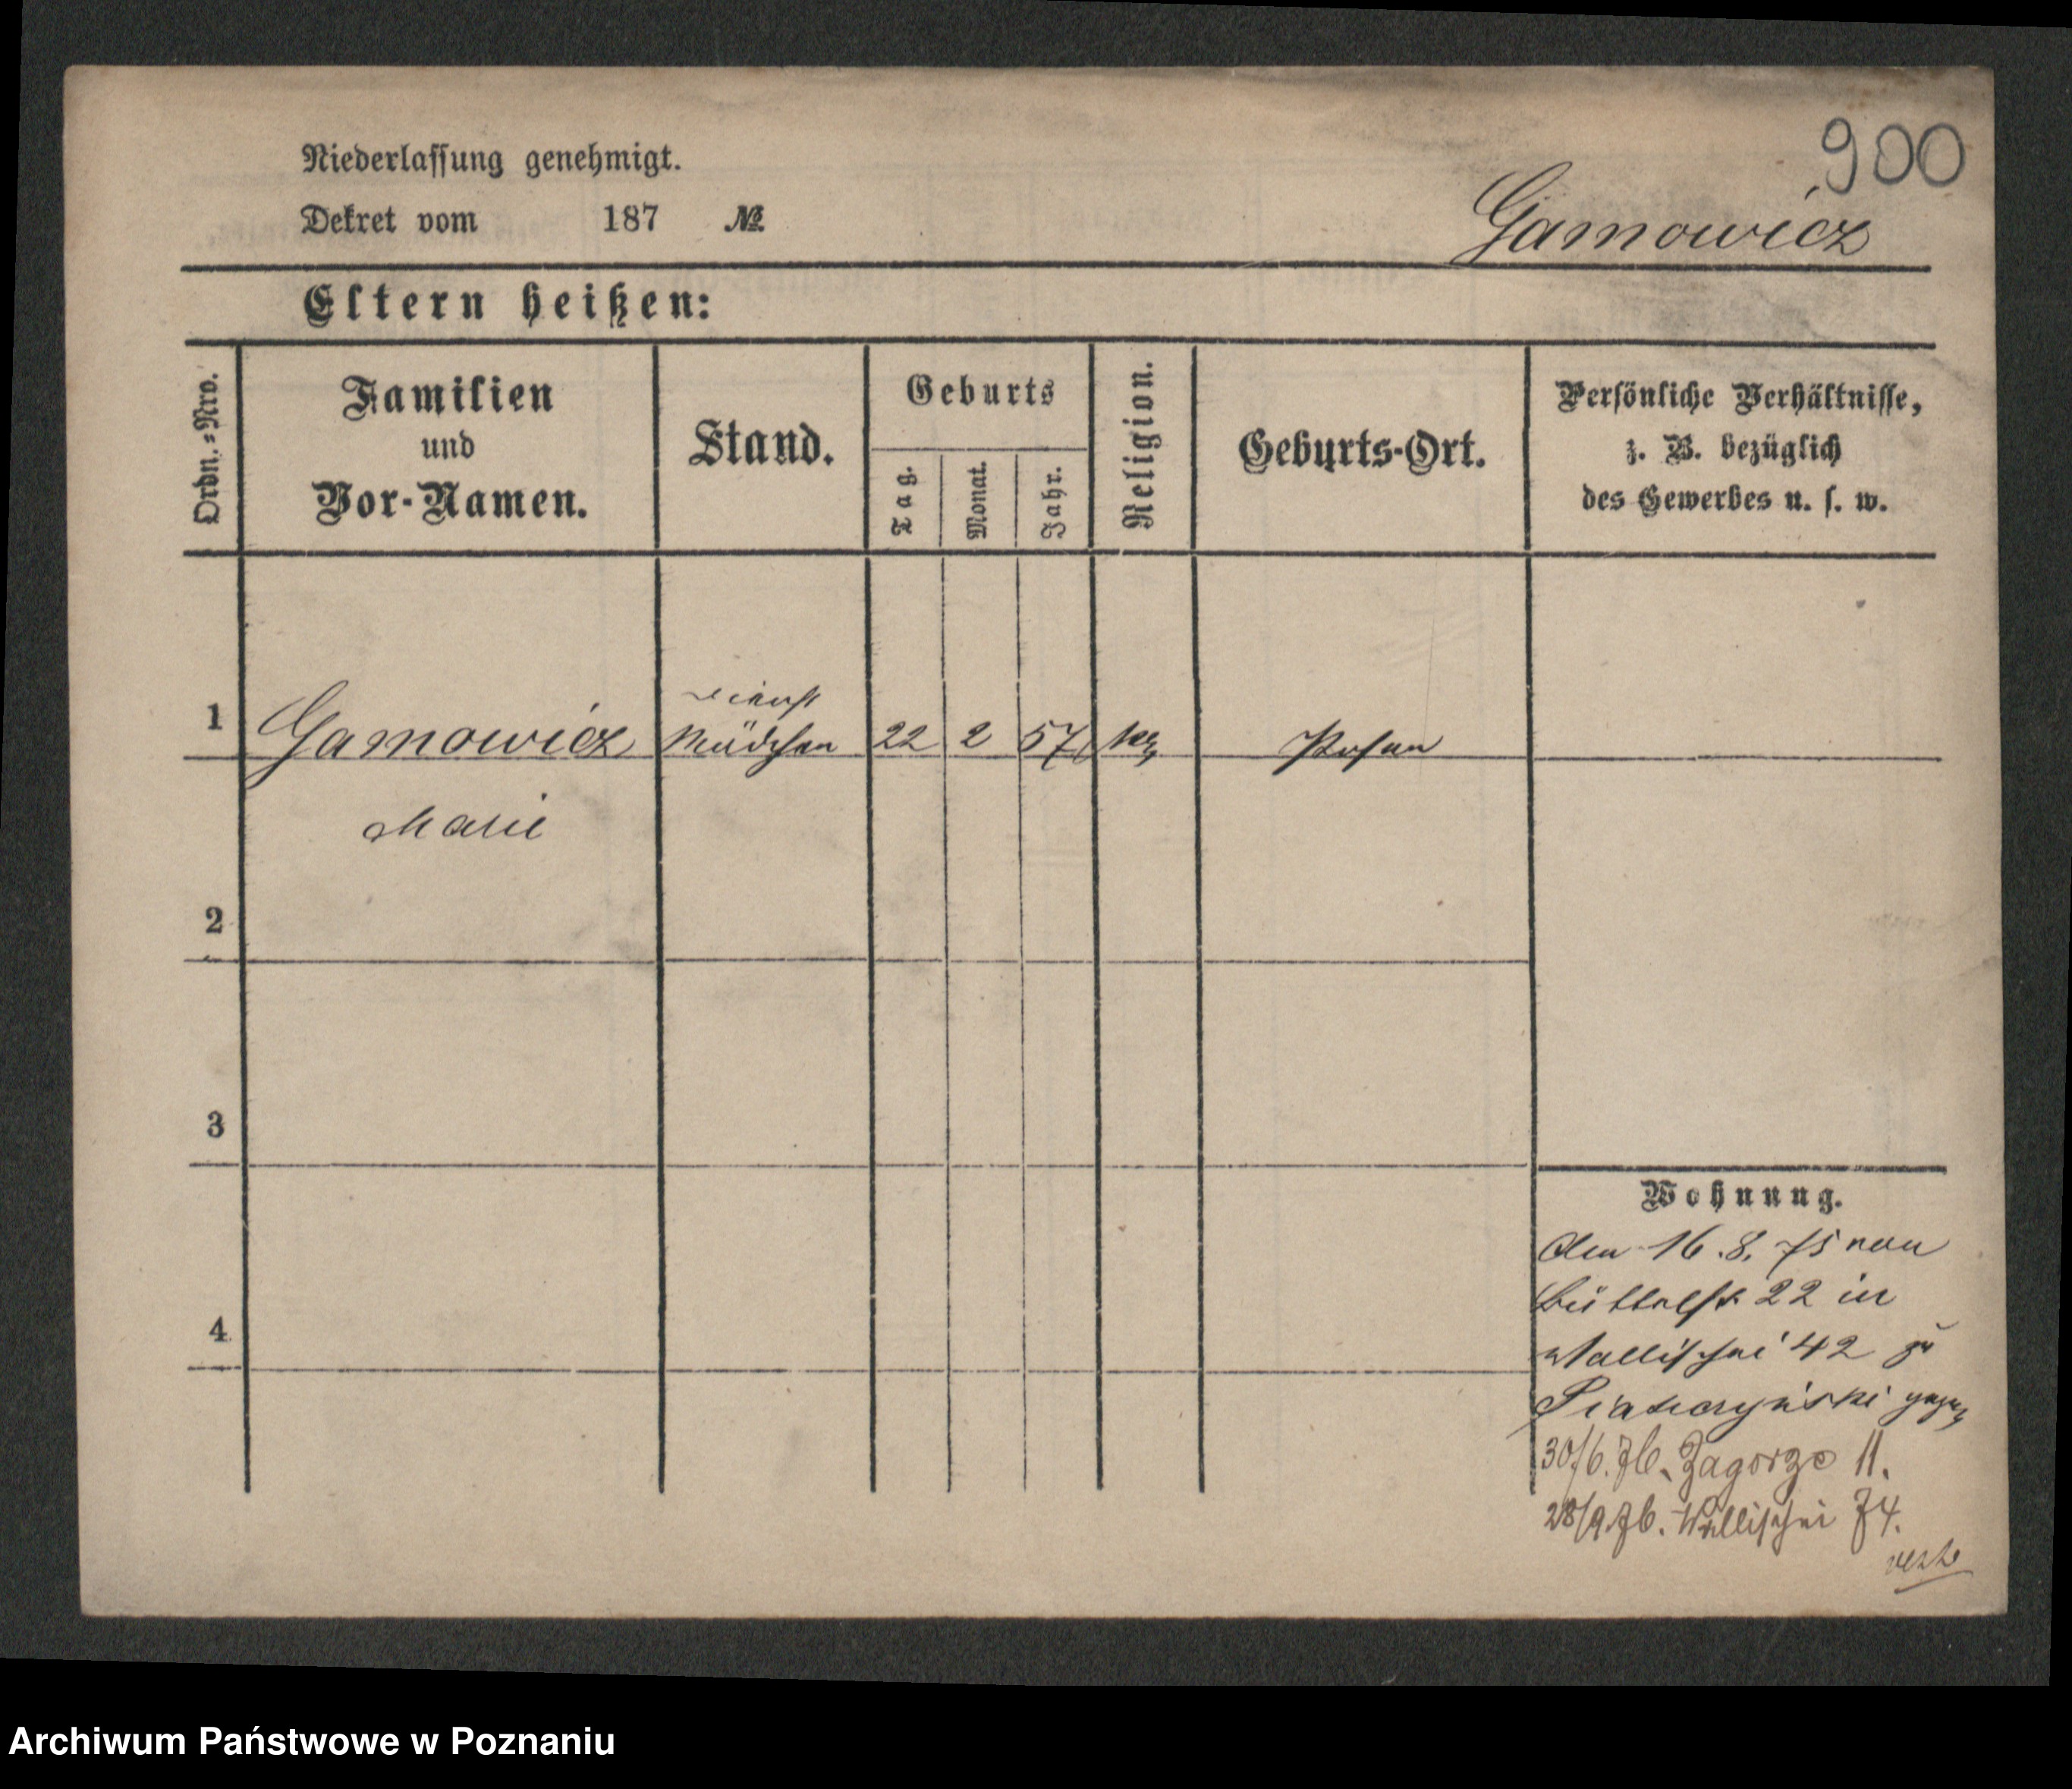 900
Niederlassung genehmigt.
Dekret vom 187 №
Gamowicz
Eltern heißen:
Ordn.=Nro.
Familien
und
Vor-Namen.
Stand.
Geburts
Tag.
Monat.
Jahr.
Religion.
Geburts-Ort.
Persönliche Verhältnisse,
z. B. bezüglich
des Gewerbes u. s. w.
Dienst
1 Gamowicz Mädchen 22 2 57 Posen
Marie
2
3
4
Wohnung.
Am 16.8.75 von
Büttelst. 22 in
Wallischei 42 zu
gezog
30/6.76. Zagorze 11.
28/9.76. Wallischei 74.
Archiwum Państwowe w Poznaniu